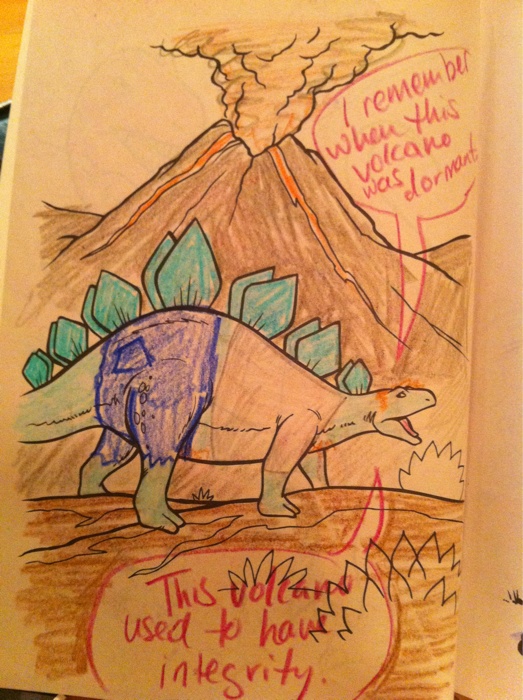 I remember
when this
volcano
was dormant.
This volcano
used to have
integrity.